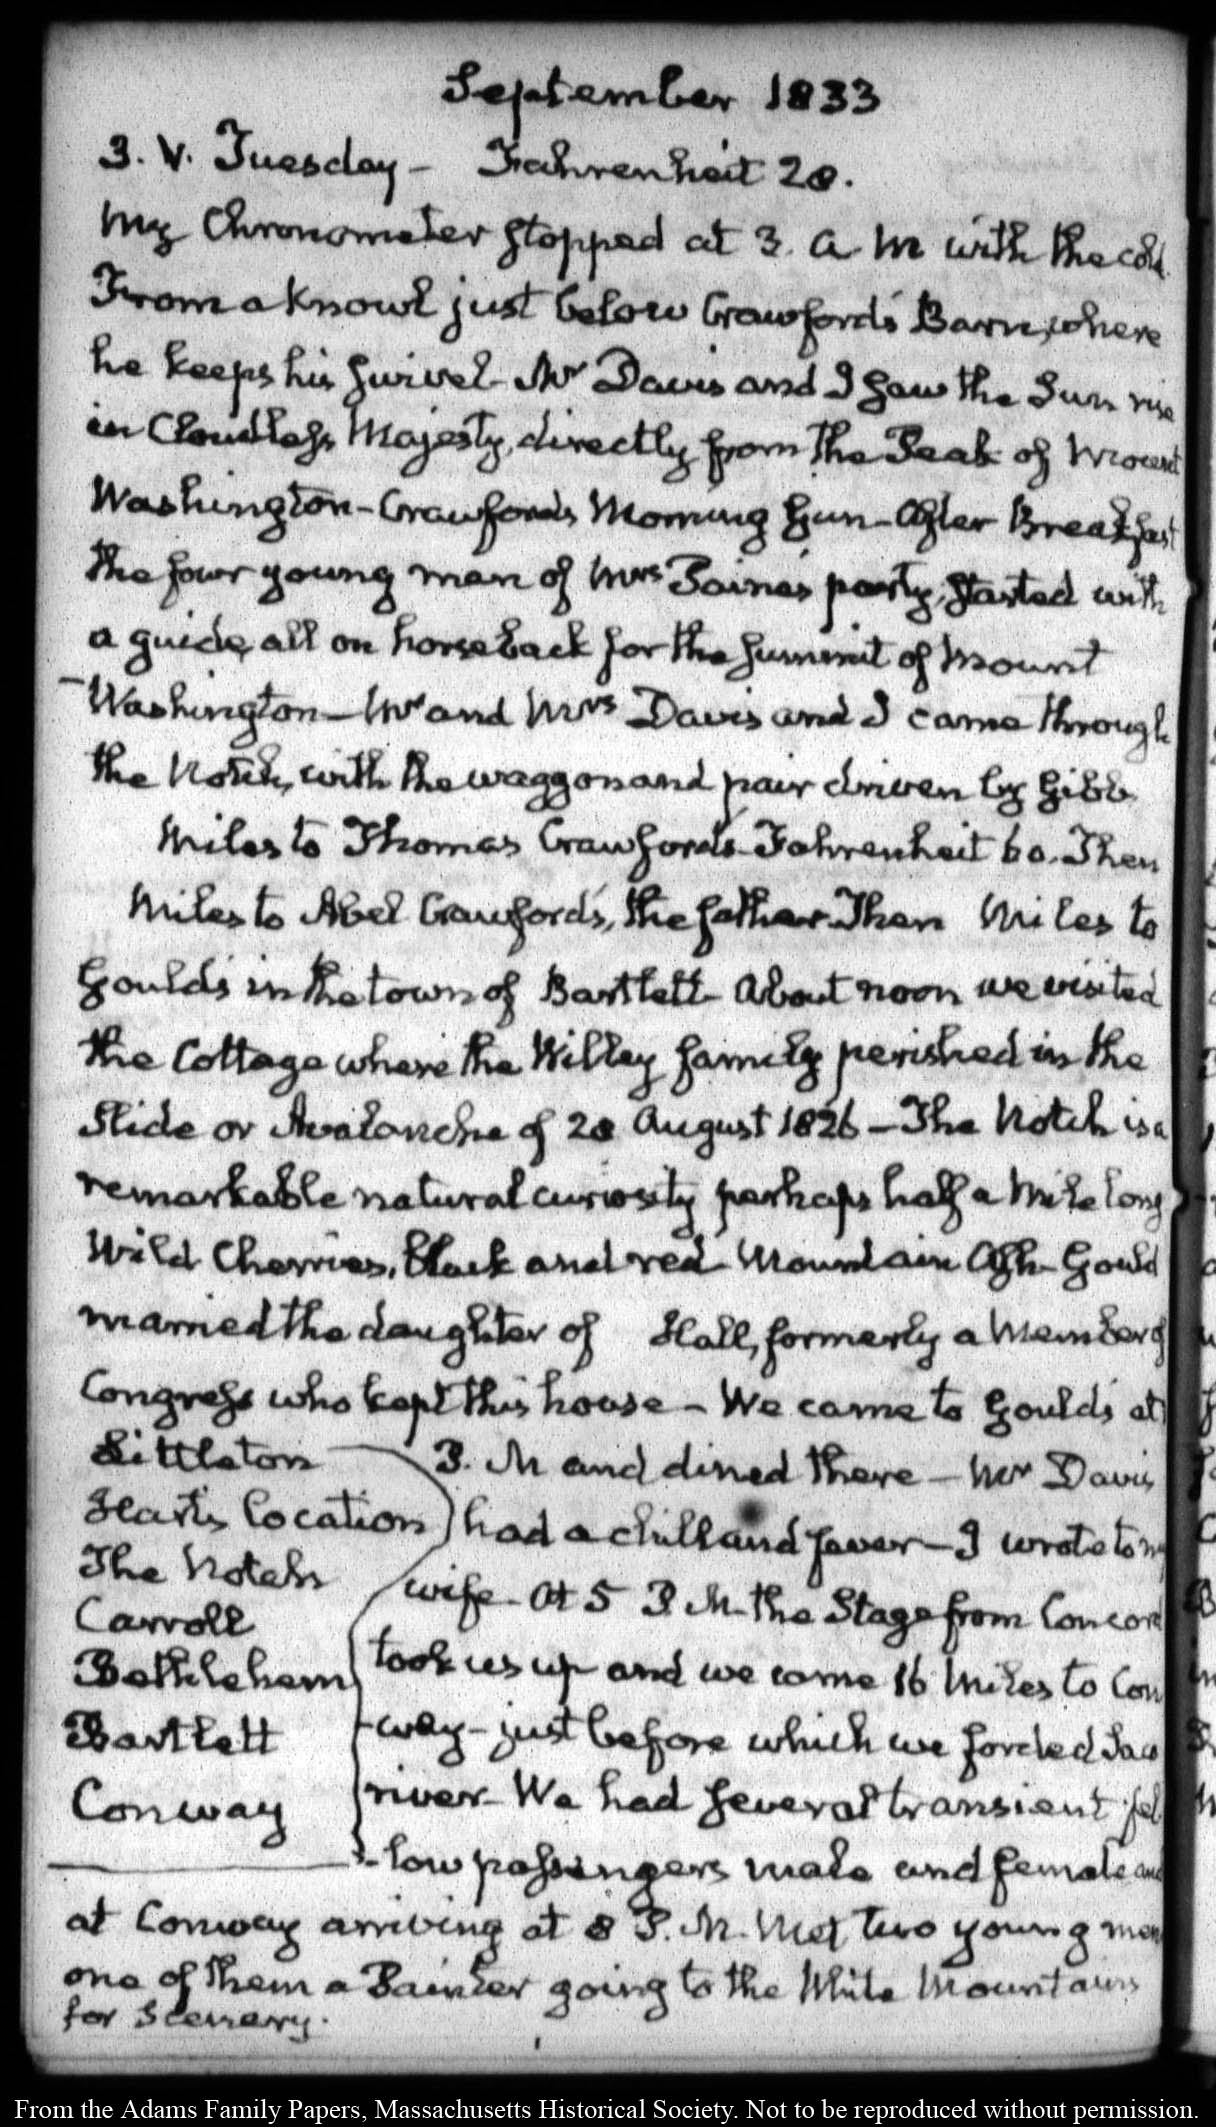 September 1833
3. V. Tuesday — Fahrenheit 28.
My Chronometer stopped at 3. A M with the cold.
From a knowl just below Crawford's Barn, where
he keeps his swivel — Mr Davis and I saw the Sun rise
in Cloudless Majesty, directly from the Peak of Mount
Washington — Crawford's Morning Gun — After Breakfast
the four young men of Mrs Paine's party, started with
a guide, all on horseback for the summit of Mount
Washington — Mr and Mrs Davis and I came through
the Notch, with the waggon and pair driven by Gibb
Miles to Thomas Crawford's — Fahrenheit 60. Then
Miles to Abel Crawford's, the father. Then Miles to
Gould's in the town of Bartlett — About noon we visited
the Cottage where the Willey family perished in the
Slide or Avalanche of 28 August 1826 — The Notch is a
remarkable natural curiosity perhaps half a Mile long
Wild Cherries, black and red — Mountain Ash — Gould
married the daughter of Hall, formerly a Member of
Congress who kept this house — We came to Gould's at
P. M and dined there — Mr Davis
had a chill and fever — I wrote to my
wife — At 5 P. M. the Stage from Concord
took us up and we came 16 Miles to Con
-way — just before which we forded Saco
river — We had several transient fel
-low passengers male and female and
Littleton
Hart's Location
The Notch
Carroll
Bethlehem
Bartlett
Conway
at Conway arriving at 8 P. M. Met two young men
one of them a Painter going to the White Mountains
for Scenery.
From the Adams Family Papers, Massachusetts Historical Society. Not to be reproduced without permission.